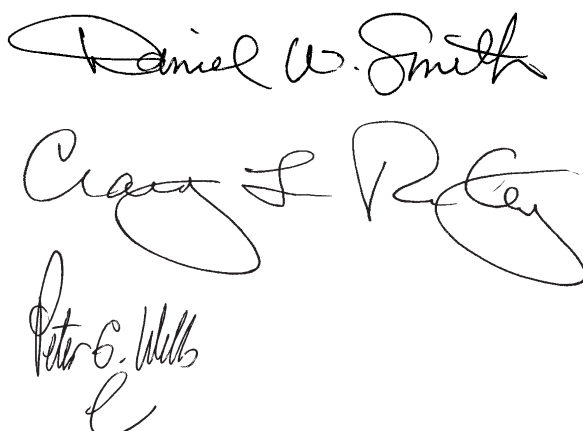 Daniel W. Smith
Craig L
Peter G. Wells